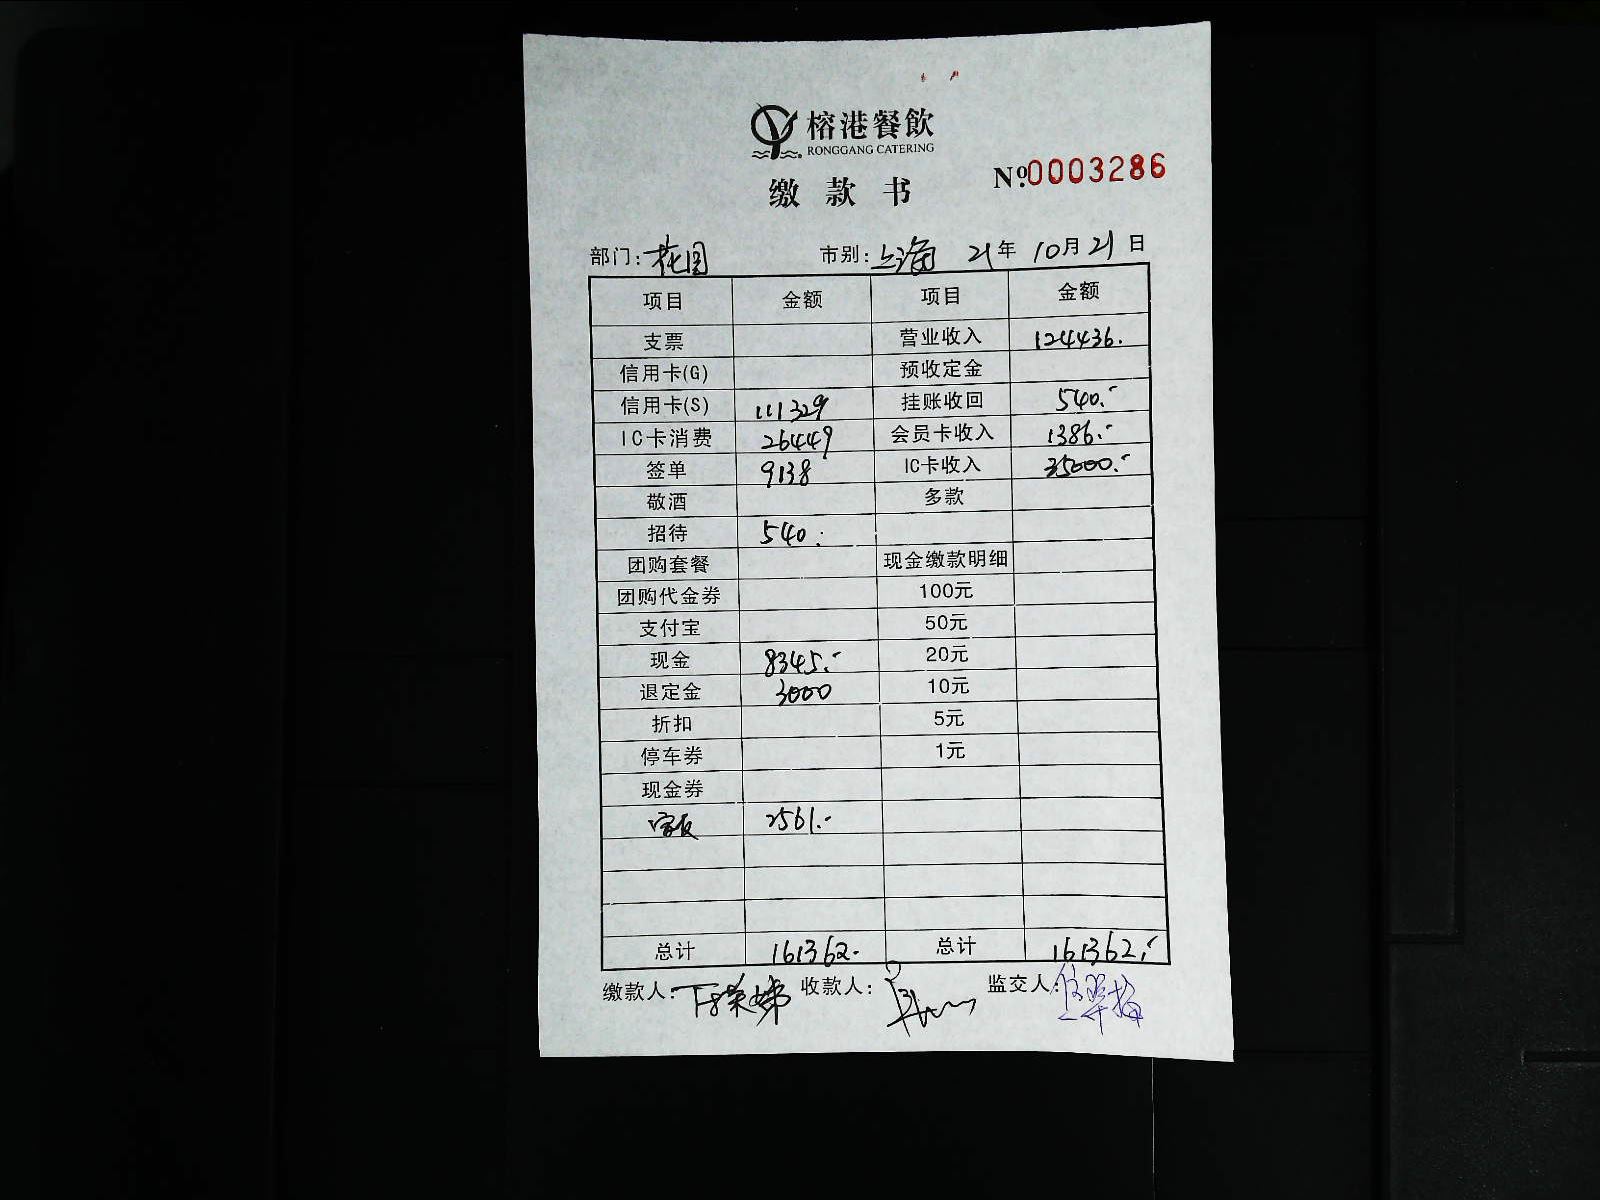 榕港餐飲
RONGGANG CATERING
№0003286
缴款书
部门：花园 市别：上海 21年 10月 21日
项目 金额 项目 金额
支票 营业收入 124436.
信用卡(G) 预收定金
信用卡(S) 111329 挂账收回 540.-
IC卡消费 26449 会员卡收入 1386.-
签单 9138 IC卡收入 35000.-
敬酒 多款
招待 540.
团购套餐 现金缴款明细
团购代金券 100元
支付宝 50元
现金 8345.- 20元
退定金 3000 10元
折扣 5元
停车券 1元
现金券
2561.-
总计 161362.- 总计 161362.-
缴款人： 收款人： 监交人：